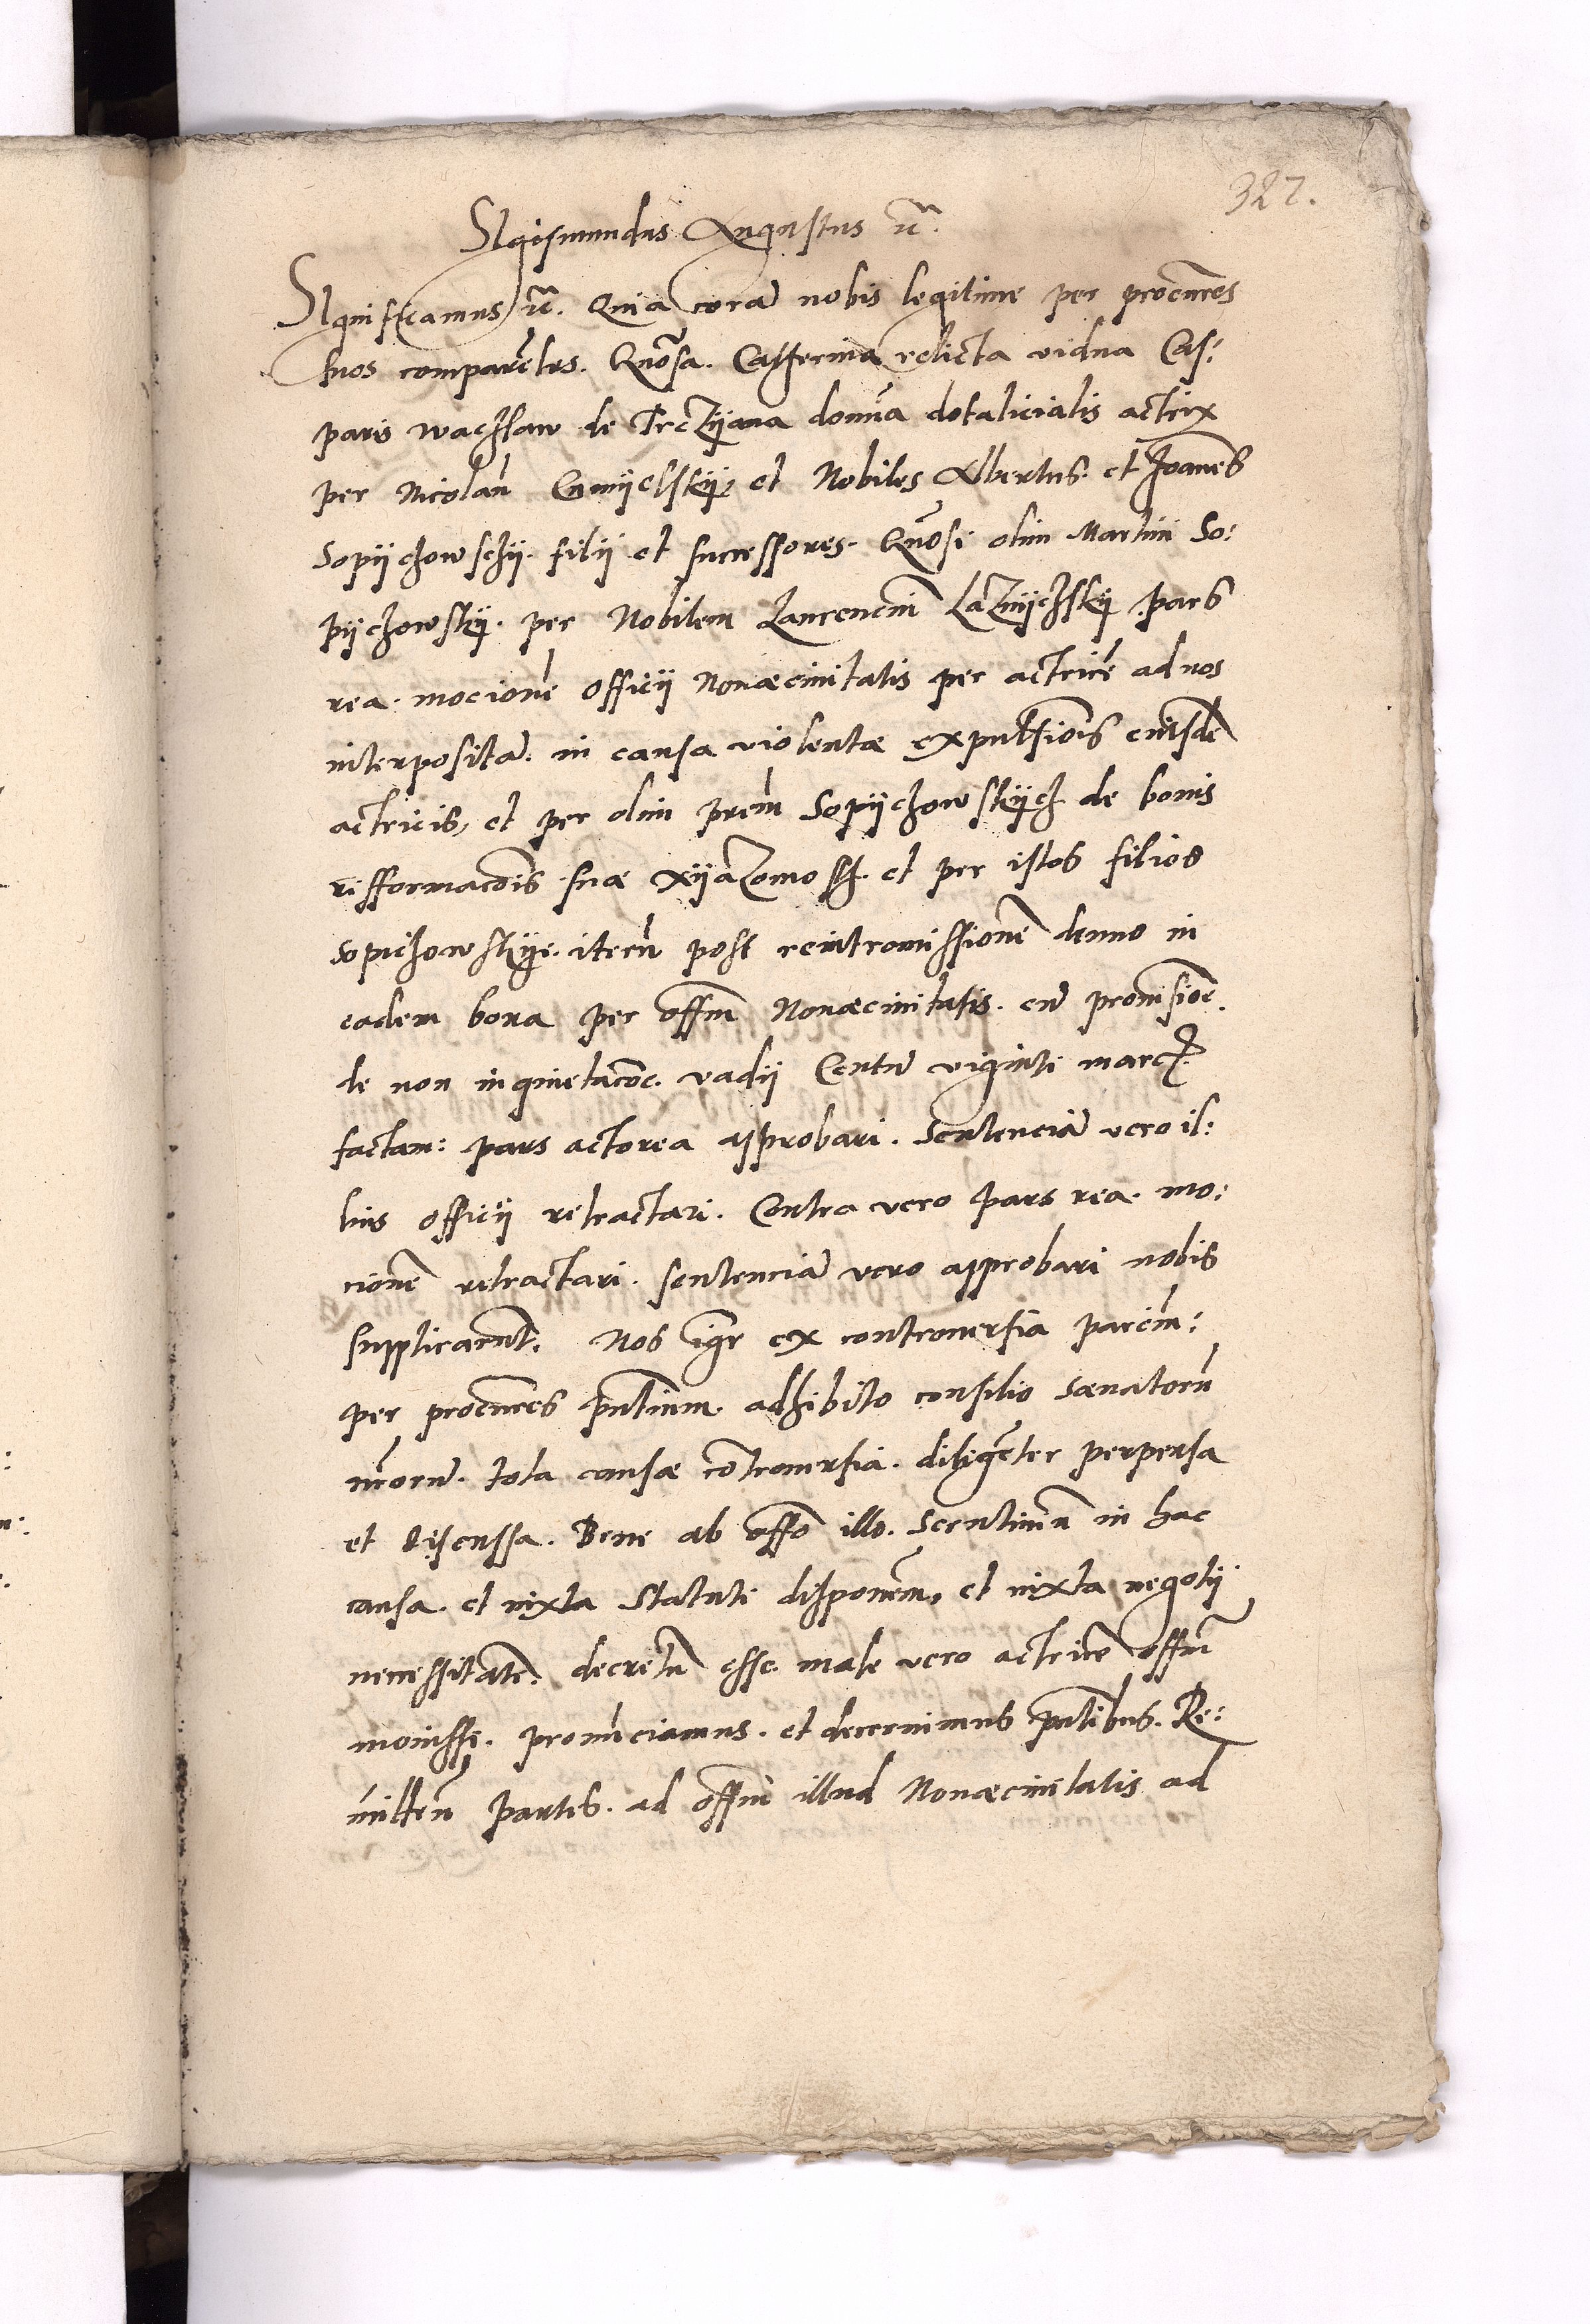 327.
Sigismundus Augustus etc.
Significamus etc. Quia corā nobis legitime per procures
suos comparētes. Gnosa. Catherina relicta vidua Cas:
paris Wachlaw de Trczijana domīa dotalicialis actrix
per Nicolaū Gmijelskij et Nobiles Albertus et Joanēs
Sopijchowschij filij et successores Gnosi olim Martini So:
pijchowskij per Nobilem Laurenciū Laznijchskij pars
rea mocionē officij Novaecivitatis per actricē ad nos
interpositā in causa violentae expulsiōis eiusdē
actricis, et per olim prem̄ Sopijchowskijch de bonis
refformacōis suae et per istos filios
Sopichowskije iterū post reintromissionē denuo in
eadem bona per offm̄ Novaecivitatis cū provisiōe
de non inquietacōe vadij Centū viginti marc.
factam: pars actorea approbari. Sentenciā vero il:
lius officij retractari. Contra vero pars rea mo:
cionē retractari. sentenciā vero approbari nobis
supplicarūt. Nos igr̄ ex controversia parciū:
per procures pn̄tium adhibito consilio Saenatorū
nr̄orū tota causae cōtroversia diligēter perpensa
et discussa. Bene ab offō illo. Scrutiniū in hac
causa et iuxta Statuti disponem, et iuxta negotij
necessitatē decretū esse male vero actricē offm̄
movisse pronūciamus et decernimus pn̄tibus. Re:
mitten̄ partes ad offm̄ illud Novaecivitatis ad